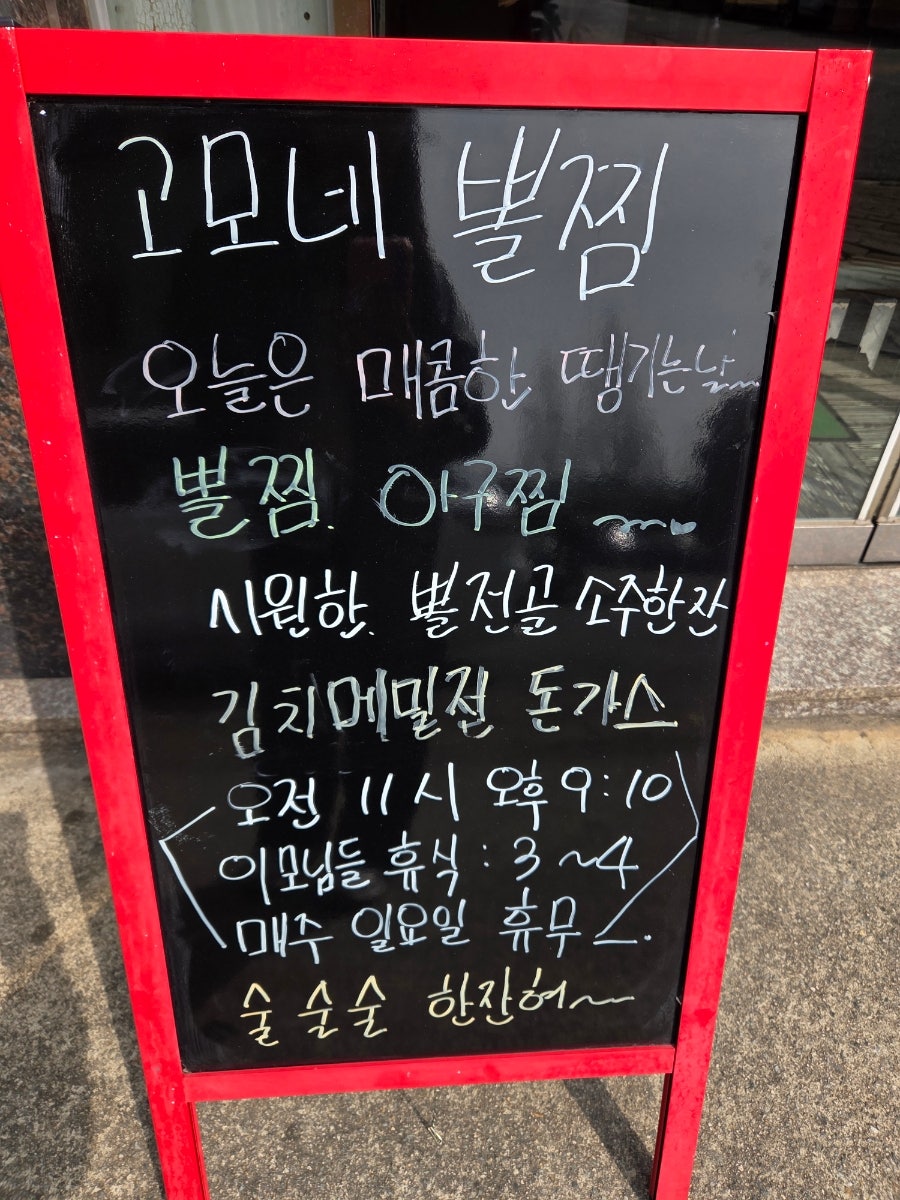 고모네 뽈찜
오늘은 매콤한 땡기는날~
뽈찜. 아구찜 ~
시원한. 뽈전골 소주한잔
김치메밀전 돈가스
오전 11시 오후 9:10
이모님들 휴식 : 3~4
매주 일요일 휴무
술 술 술 한잔혀~